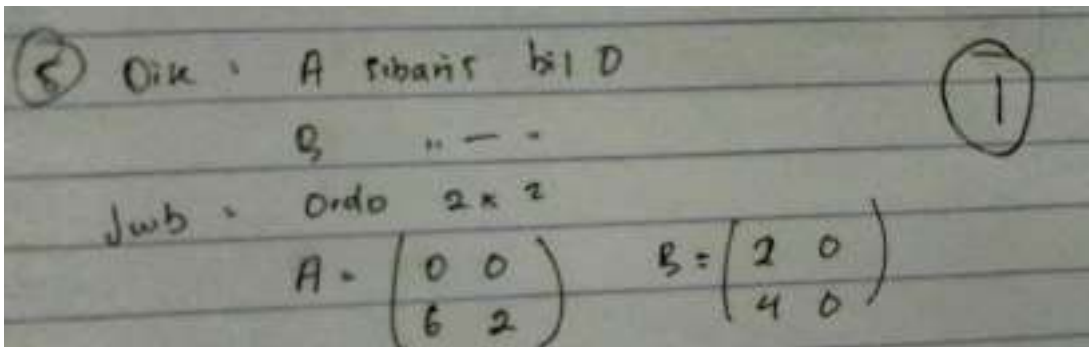 5 Dik : A sibaris bil 0
1
B " - -
Jwb : Ordo 2 x 2
A = ( 0 0 ) B = ( 2 0 )
( 6 2 ) ( 4 0 )